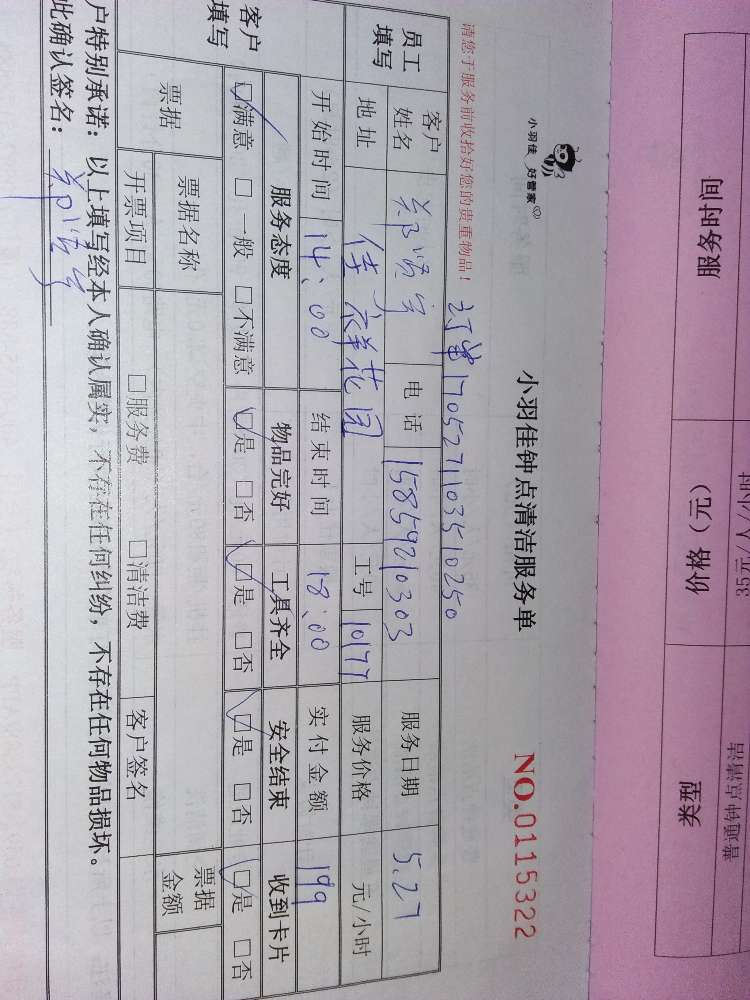 小羽佳 好管家
小羽佳钟点清洁服务单
NO.0115322
请您于服务前收拾好您的贵重物品！
订单1705271103510250
员工填写
客户姓名 电话 15859210303 服务日期 5.27
地址 佳祥花园 工号 10177 服务价格 元/小时
开始时间 14:00 结束时间 18:00 实付金额 199
客户填写
服务态度 物品完好 工具齐全 安全结束 收到卡片
☑满意 □一般 □不满意 ☑是 □否 ☑是 □否 ☑是 □否 ☑是 □否
票据 票据名称 票据金额
开票项目 □服务费 □清洁费 客户签名
户特别承诺：以上填写经本人确认属实，不存在任何纠纷，不存在任何物品损坏。
此确认签名：
服务时间 价格（元） 类型
35元/人/小时 普通钟点清洁